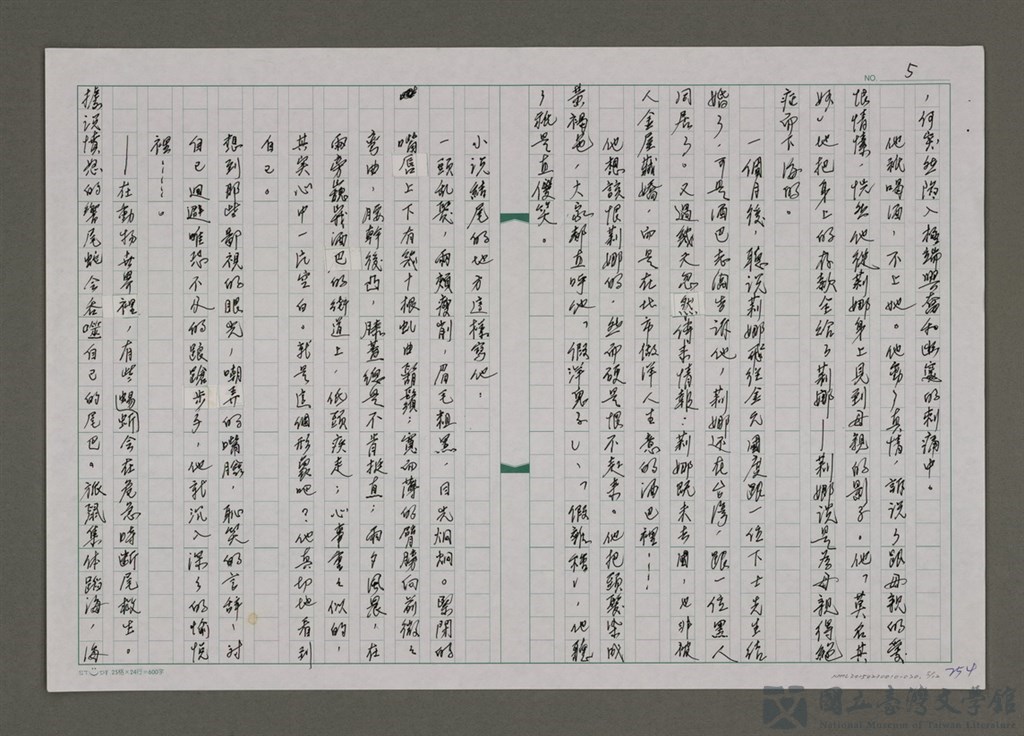 NO. 5
，何突然陷入極端興奮和幽寞的刺痛中。
他就喝酒，不上她。他動了真情，訴說了跟母親的愛
恨情愫，恍然他從莉娜身上見到母親的影子。他「莫名其
妙」他把身上的存款全給了莉娜——莉娜說是為母親得絕
症而下海的。
一個月後，聽說莉娜飛往金元國度跟一位下士先生結
婚了，可是酒巴老闆告訴他，莉娜還在台灣，跟一位黑人
同居了。又過幾天忽然傳來情報：莉娜既未去國，也非被
人金屋藏嬌，而是在北市做洋人生意的酒巴裡……
他想該恨莉娜的，然而硬是恨不起來。他把頭髮染成
黃褐色，大家都直呼他「假洋鬼子」、「假雜種」，他聽
了祇是直傻笑。
小說結尾的地方這樣寫他：
一頭乱髮，兩頰瘦削，眉毛粗黑，目光炯炯。緊閉的
嘴唇上下有幾十根虬曲鬍鬚；寬而薄的臂膀向前微微
彎曲，腰幹後凸，膝蓋總是不肯挺直；兩夕風晨，在
兩旁聽幾酒巴的街道上，低頭疾走；心事重重似的，
其實心中一片空白。就是這個形象吧？他真切地看到
自己。
想到那些鄙視的眼光，嘲弄的嘴臉，恥笑的言辭，對
自己迴避唯恐不及的踉蹌步子，他就沉入深深的愉悅
裡……。
——在動物世界裡，有些蜥蜴會在危急時斷尾救生。
據說憤怒的響尾蛇會吞噬自己的尾巴。旅鼠集体蹈海，海
25格×24行=600字
254
國立臺灣文學館
National Museum of Taiwan Literature